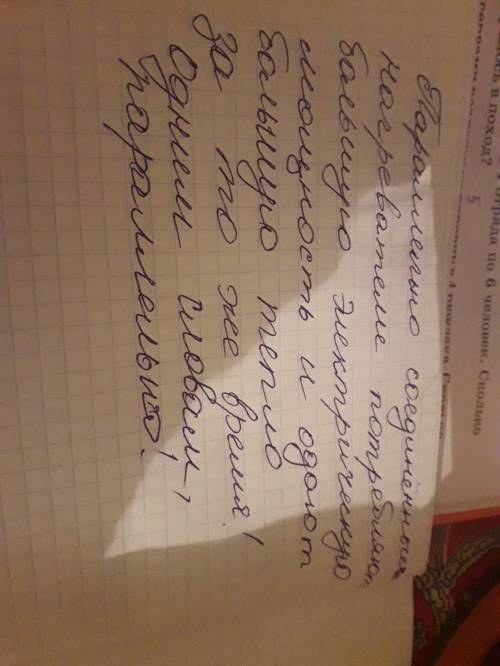 лось в поход? отряда по 6 человек. Сколько
5
Параллельно соединённых
нагревателе потребляют
большую электрическую
мощность и одают
большую тепло
за то же время!
Одним словам,
параллельно!